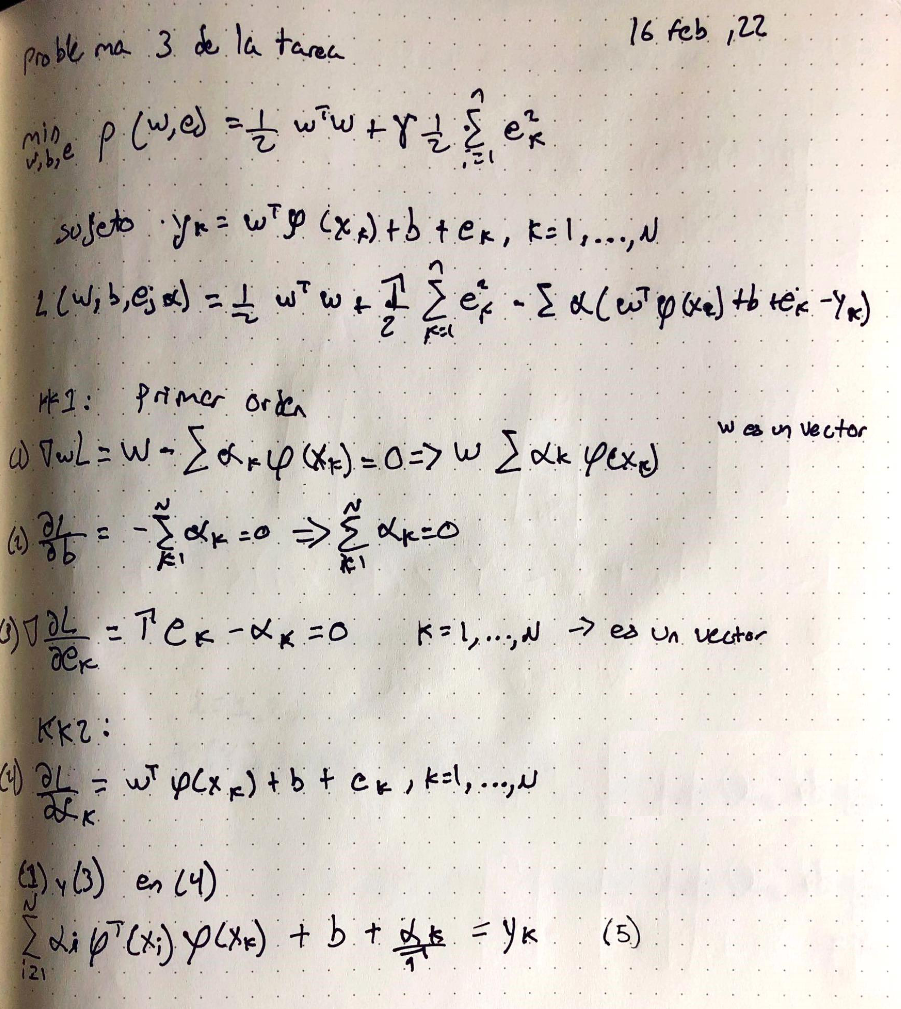 Problema 3 de la tarea
16 feb, 22
min w,b,e ρ(w,e) = 1/2 wᵀw + γ 1/2 Σ_{i=1}^n e_k²
sujeto · y_k = wᵀφ(x_k) + b + e_k, k=1,...,N
L(w,b,e;α) = 1/2 wᵀw + Γ/2 Σ_{k=1}^n e_k² - Σ α(wᵀφ(x_k) + b + e_k - y_k)
KK1: Primer orden
w es un vector
(1) ∇wL = w - Σ α_k φ(x_k) = 0 => w Σ α_k φ(x_k)
(2) ∂L/∂b = - Σ_{k=1}^N α_k = 0 => Σ_{k=1}^N α_k = 0
(3) ∇ ∂L/∂e_k = Γ e_k - α_k = 0 k=1,...,N → es un vector
KK2:
(4) ∂L/∂α_k = wᵀ φ(x_k) + b + e_k, k=1,...,N
(1) y (3) en (4)
Σ_{i=1}^N α_i φᵀ(x_i) φ(x_k) + b + α_k/Γ = y_k (5)